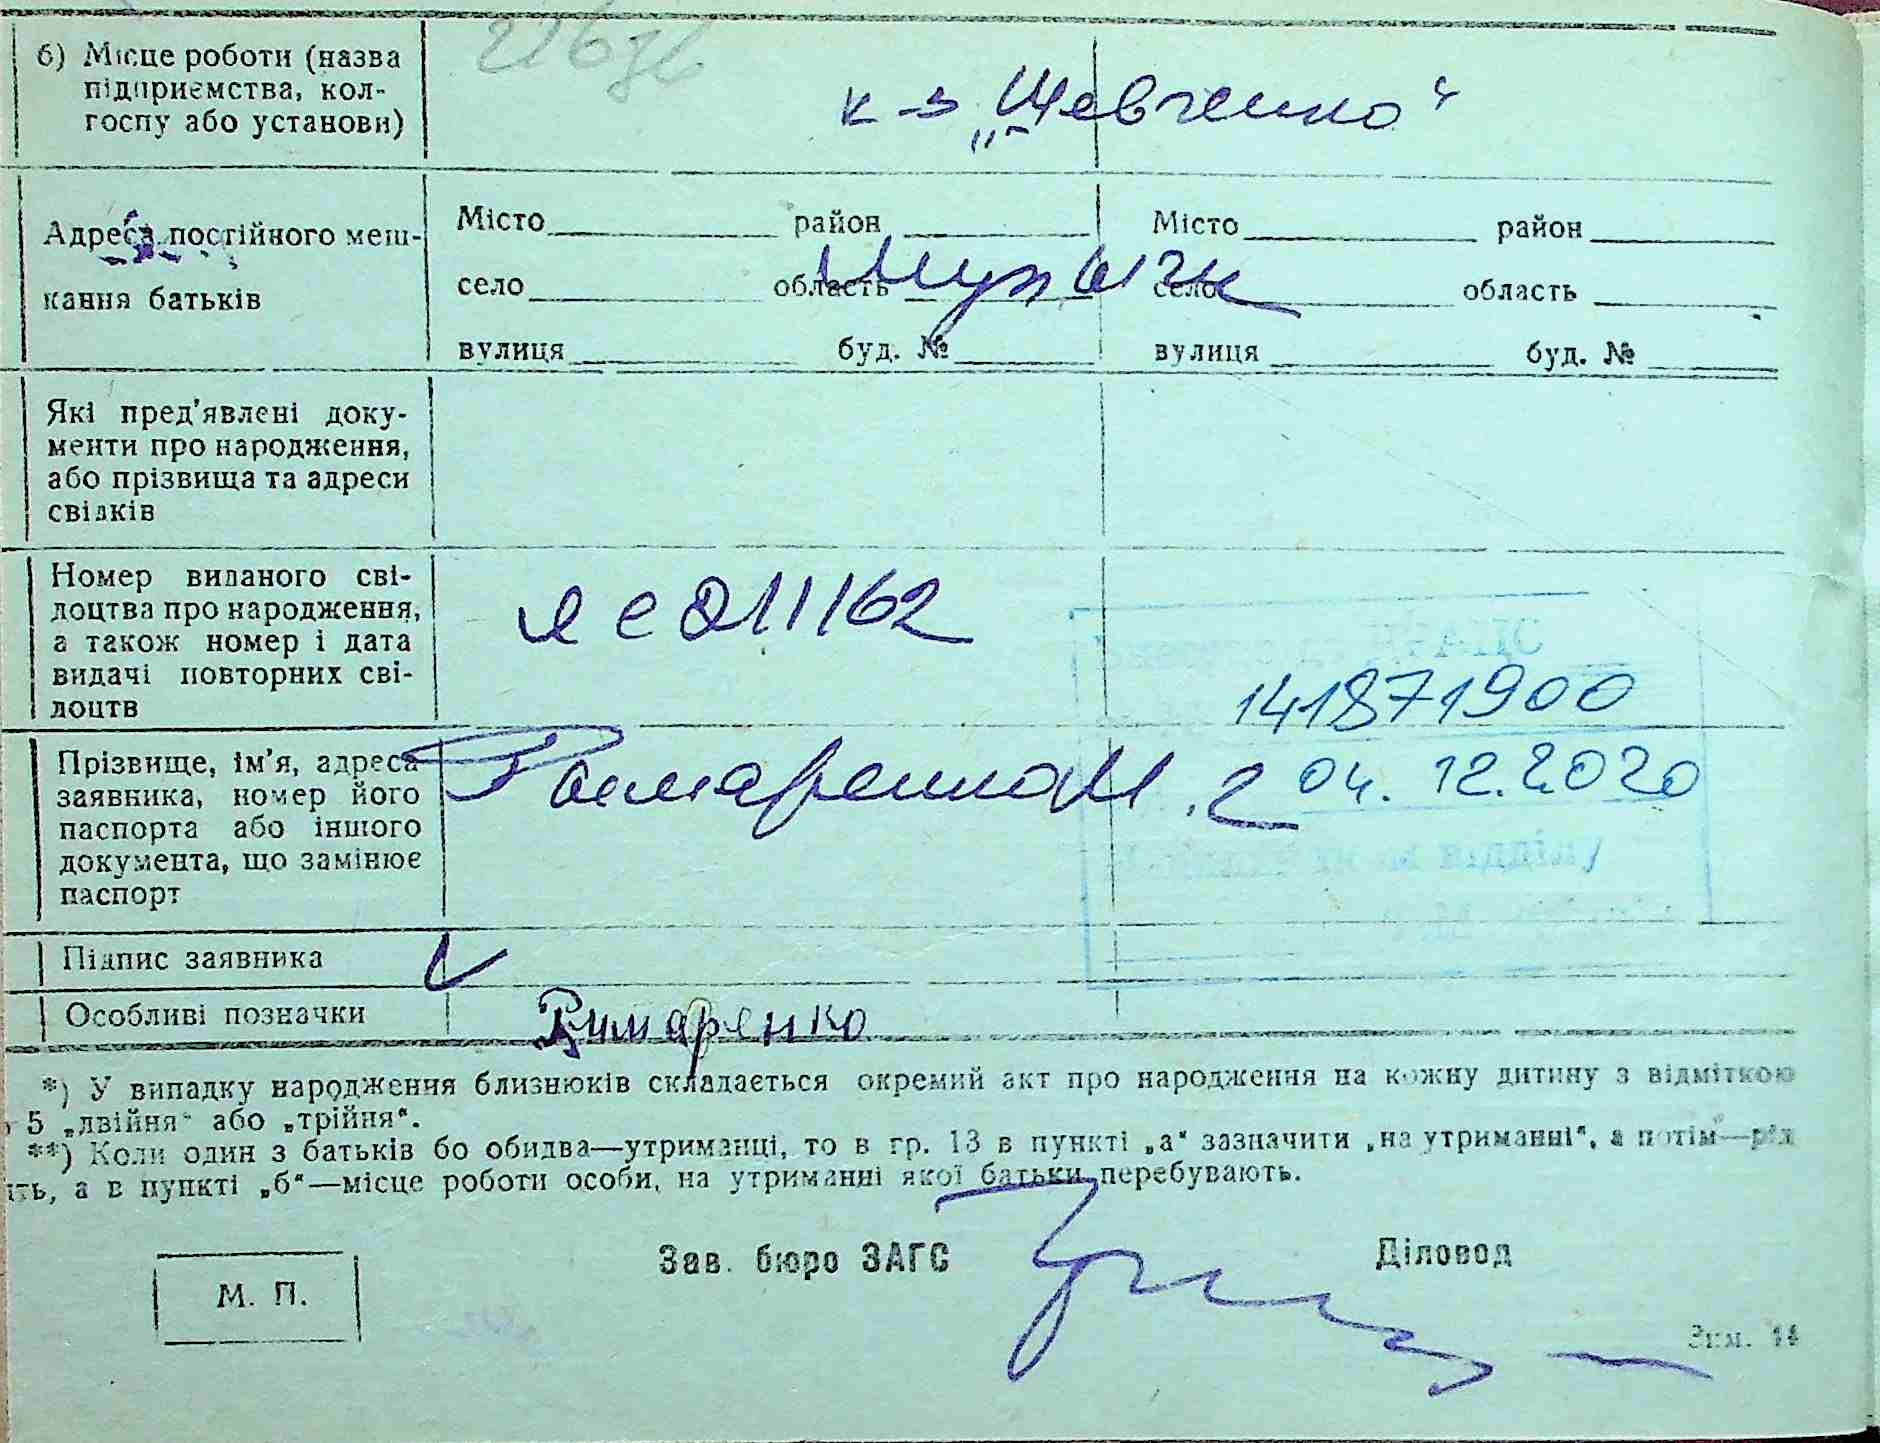 б) Місце роботи (назва
підприємства, кол-
госпу або установи)
к-з „Шевченко“
Адреса постійного меш-
кання батьків
Місто район Місто район
село область село область
вулиця буд. № вулиця буд. №
Які пред'явлені доку-
менти про народження,
або прізвища та адреси
свідків
Номер виданого сві-
доцтва про народження,
а також номер і дата
видачі повторних сві-
доцтв
141871900
04. 12.2020
відділу
Прізвище, ім'я, адреса
заявника, номер його
паспорта або іншого
документа, що замінює
паспорт
Підпис заявника
Особливі позначки
Римаренко
*) У випадку народження близнюків складається окремий акт про народження на кожну дитину з відміткою
5 „двійня“ або „трійня“.
**) Коли один з батьків бо обидва—утриманці, то в гр. 13 в пункті „а“ зазначити „на утриманні“, а потім—рід
ть, а в пункті „б“—місце роботи особи, на утриманні якої батьки перебувають.
Зав. бюро ЗАГС Діловод
М. П.